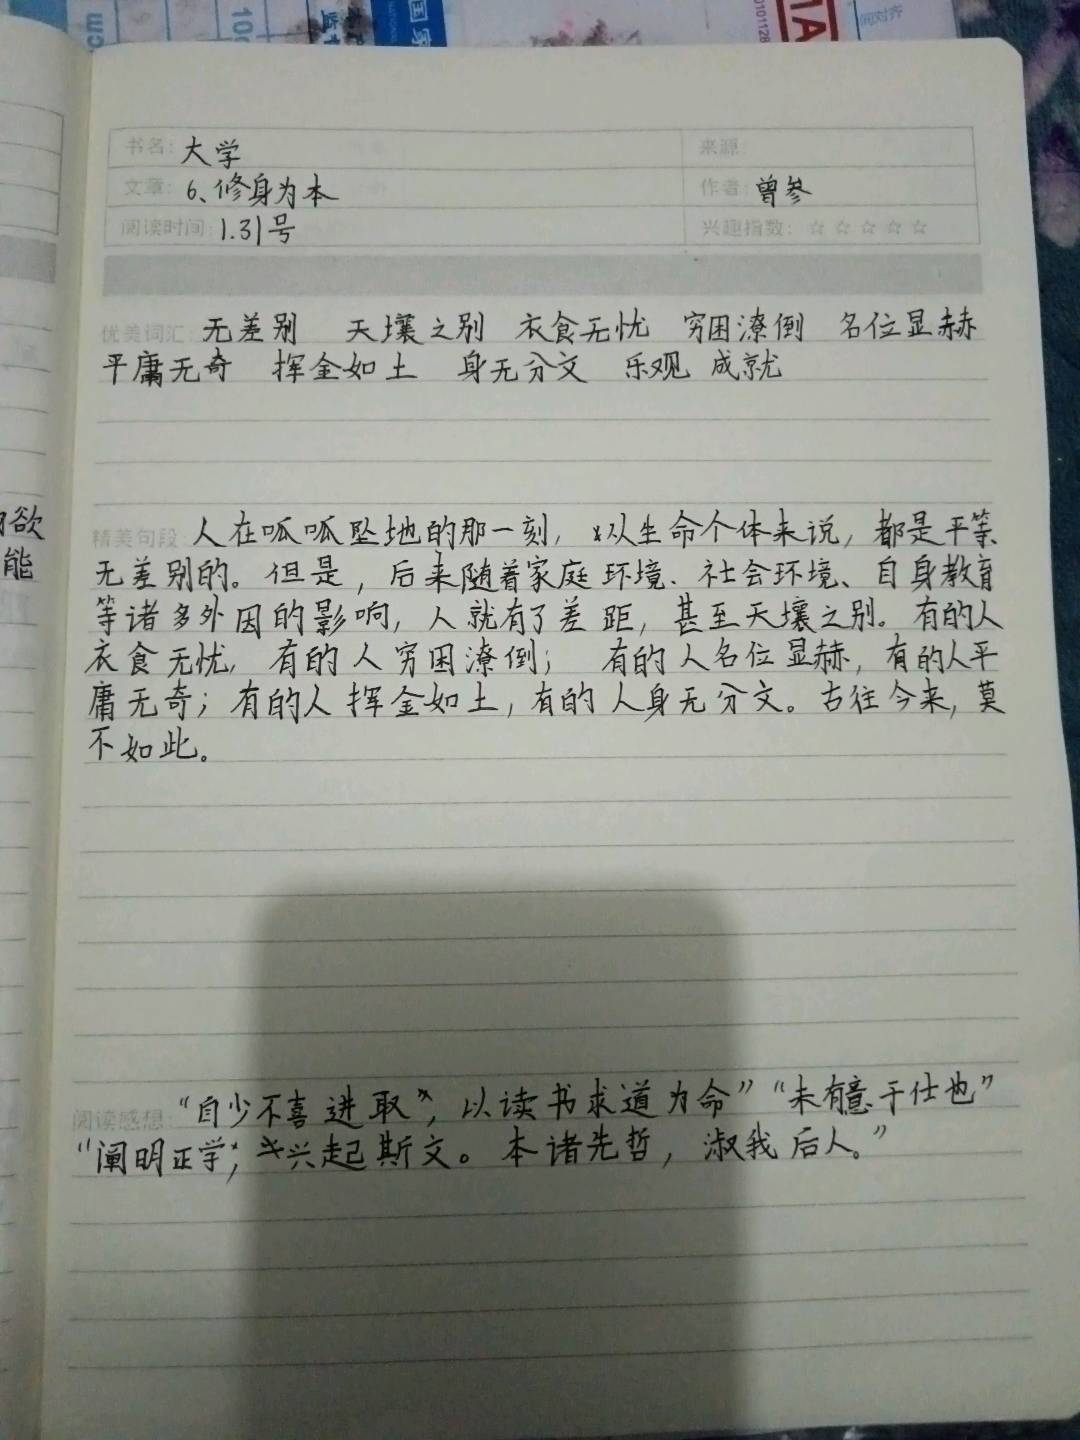 cm
10
监
国 家
0101128
IA
间对齐
书名: 大学
来源:
文章: 6、修身为本
作者: 曾参
阅读时间: 1.31号
兴趣指数: ☆☆☆☆☆
优美词汇: 无差别 天壤之别 衣食无忧 穷困潦倒 名位显赫
平庸无奇 挥金如土 身无分文 乐观 成就
欲
能
精美句段: 人在呱呱坠地的那一刻, 从生命个体来说, 都是平等
无差别的。但是, 后来随着家庭环境、社会环境、自身教育
等诸多外因的影响, 人就有了差距, 甚至天壤之别。有的人
衣食无忧, 有的人穷困潦倒; 有的人名位显赫, 有的人平
庸无奇; 有的人挥金如土, 有的人身无分文。古往今来, 莫
不如此。
阅读感想: “自少不喜进取”, 以读书求道为命” “未有意于仕也”
“阐明正学, 兴起斯文。本诸先哲, 淑我后人。”